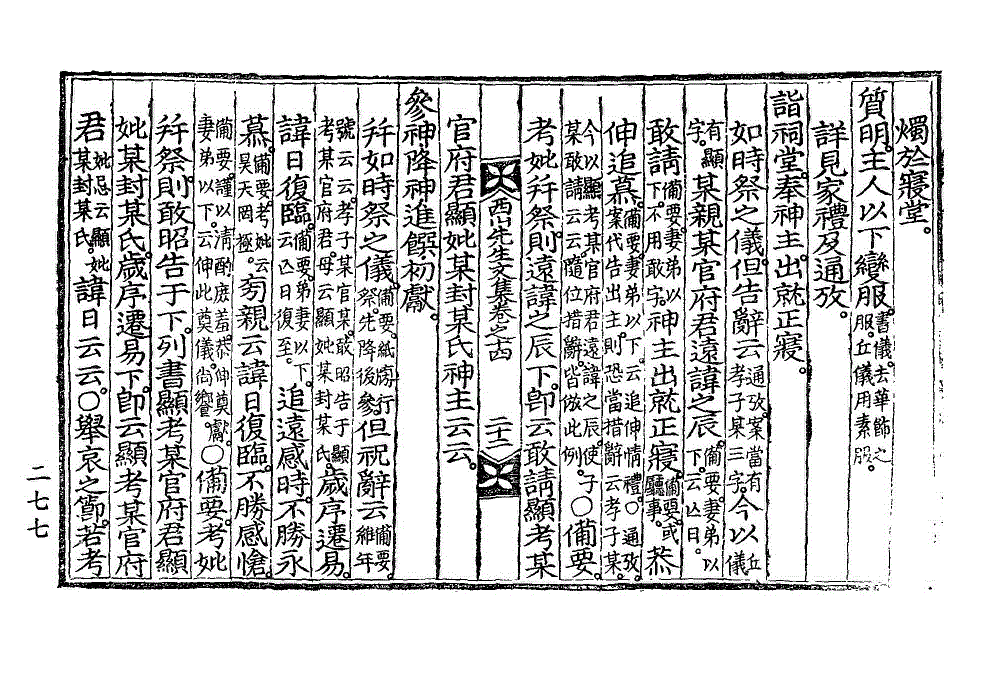 燭於寢堂。
質明。主人以下變服。書儀。去華飾之服。丘儀。用素服。
詳見家禮及通攷。
詣祠堂。奉神主。出就正寢。
如時祭之儀。但告辭云孝子某。通攷。案當有三字。今以丘儀
有顯字。某親某官府君遠諱之辰。下。備要。妻弟以下。云亡日。
敢請下。備要。妻弟以下。不用敢字。神主出就正寢。備要。或廳事。恭
伸追慕。備要。妻弟以下。云追伸情禮。○通攷。案代告出主。則恐當措辭云孝子某。
今以顯考某官府君遠諱之辰。使子某敢請云云。隨位措辭。皆倣此例。○備要。
考妣幷祭。則遠諱之辰下。卽云敢請顯考某
西山先生文集卷之十四
二十二
官府君顯妣某封某氏神主云云。
參神降神進饌初獻。
幷如時祭之儀。備要。紙牓行祭。先降後參。但祝辭云備要。維年
號云云。孝子某官某。敢昭告于顯考某官府君。母云顯妣某封某氏。歲序遷易。
諱日復臨。備要。妻弟以下。云亡日復至。追遠感時。不勝永
慕。備要。考妣云昊天罔極。旁親云諱日復臨。不勝感愴。
備要。謹以淸酌庶羞。恭伸奠獻。妻弟以下。云伸此奠儀。尙饗。○備要。考妣
幷祭。則敢昭告于下。列書顯考某官府君顯
妣某封某氏。歲序遷易下。卽云顯考某官府
君妣忌云顯妣某封某氏。諱日云云。○擧哀之節。若考
二七七